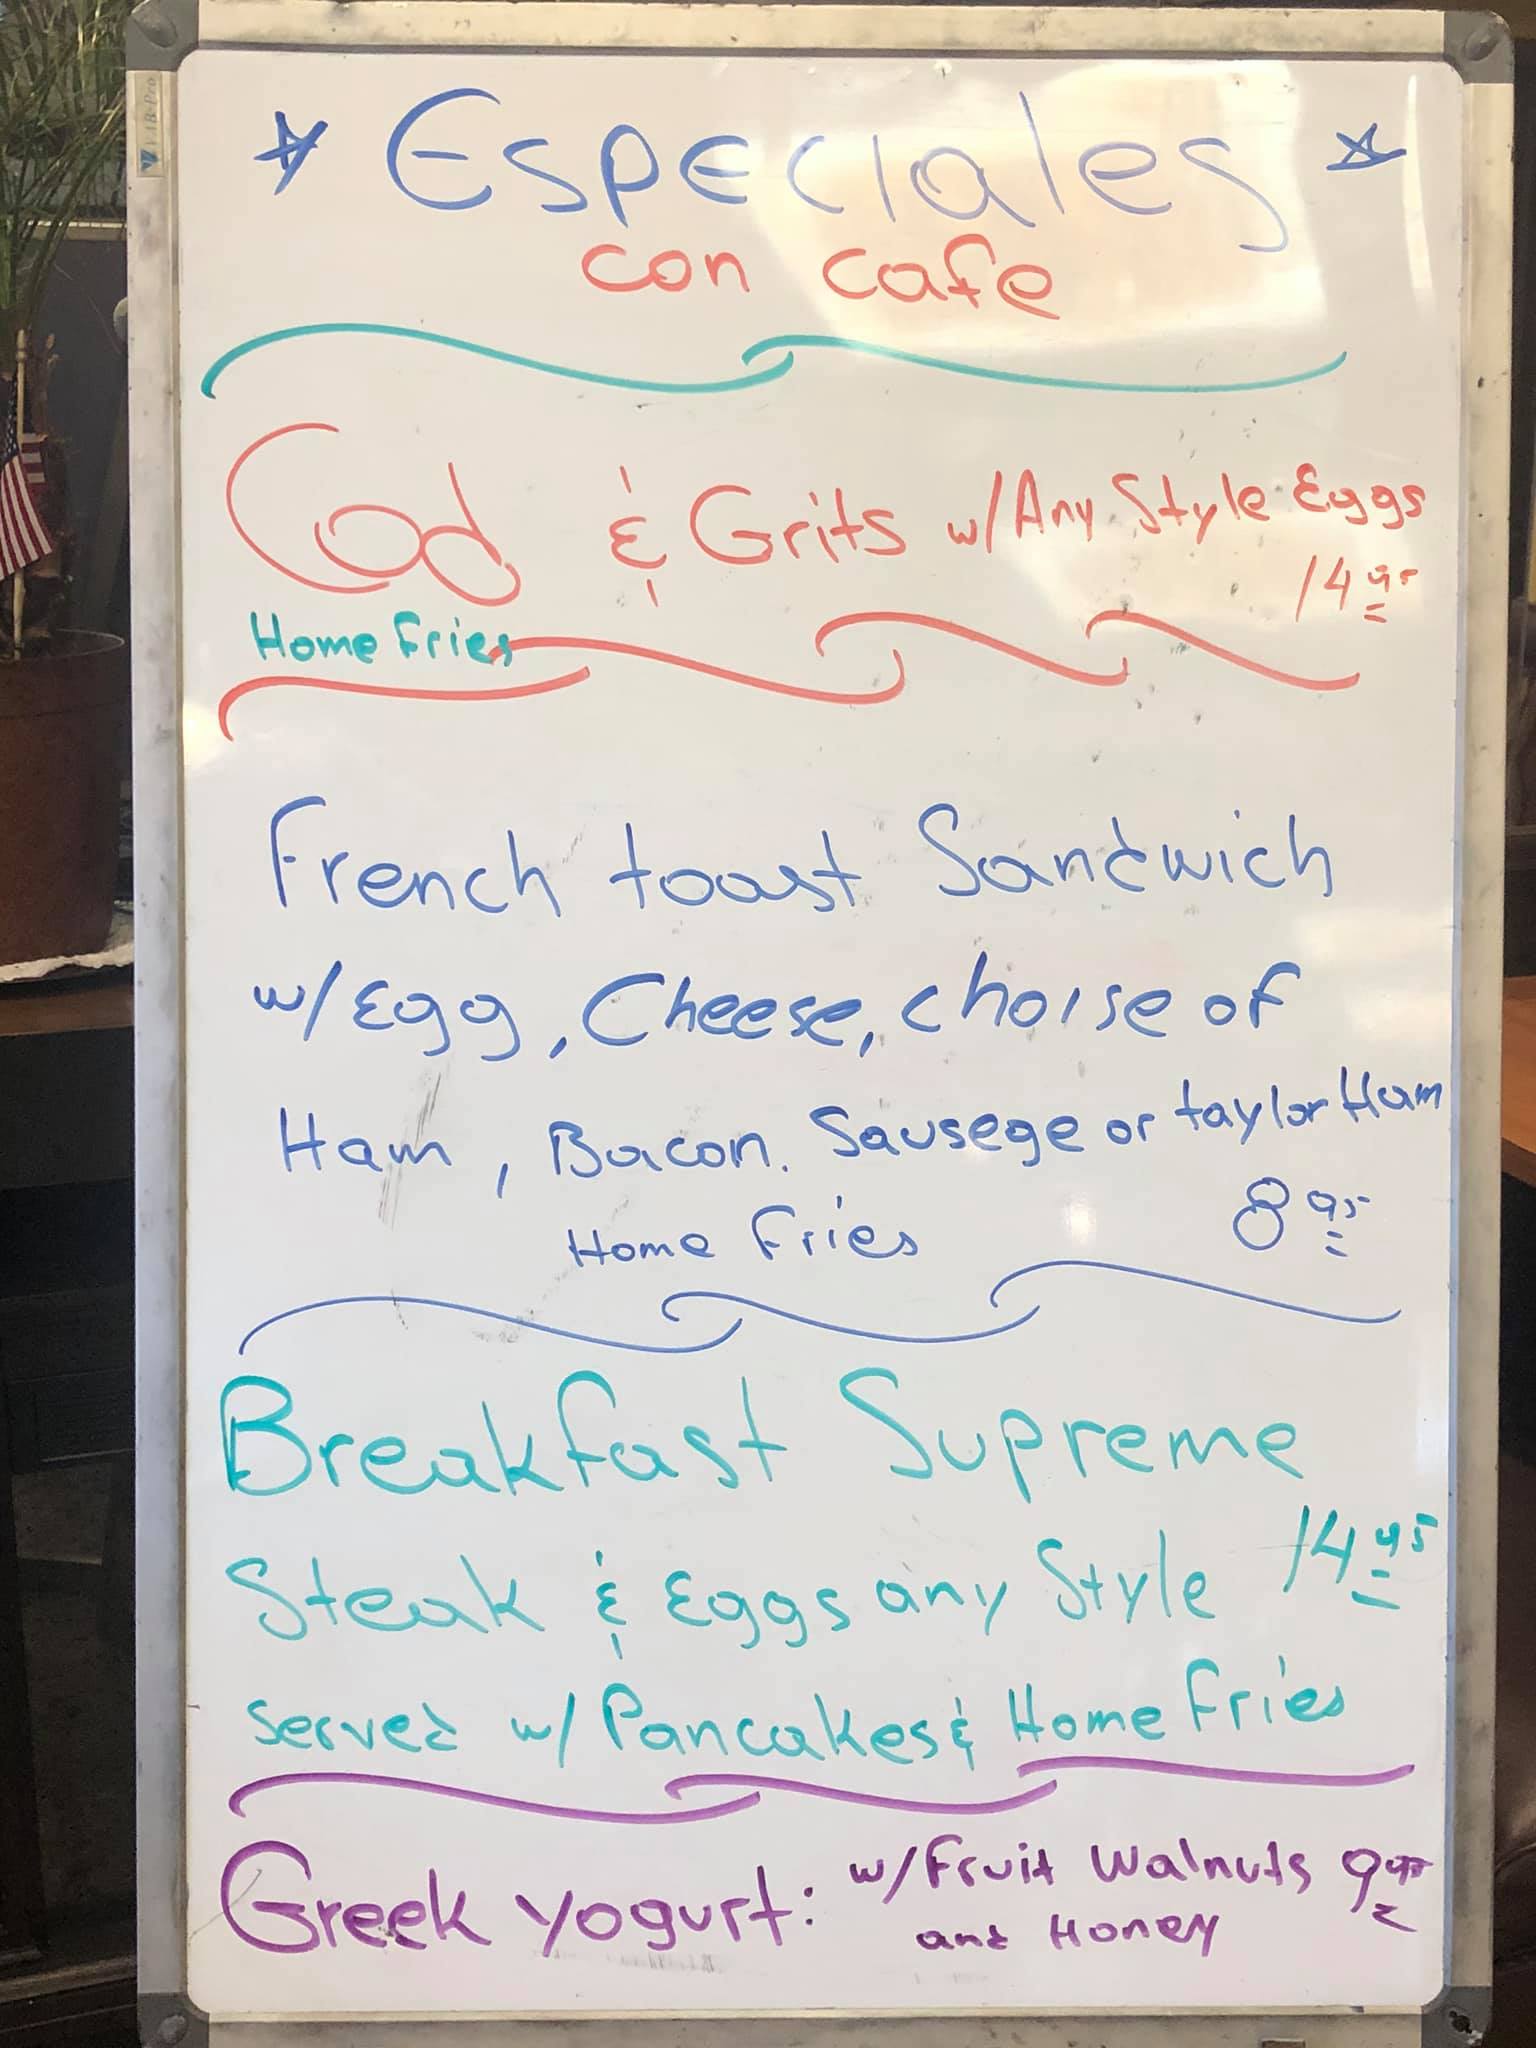 Especiales
con cafe
Cod & Grits w/Any Style Eggs
14 95
Home Fries
French toast Sandwich
w/Egg, Cheese, choise of
Ham, Bacon. Sausege or taylor Ham
Home Fries 8 95
Breakfast Supreme
Steak & Eggs any Style 14 95
served w/Pancakes & Home Fries
Greek yogurt: w/Fruit Walnuts 9 95
and Honey